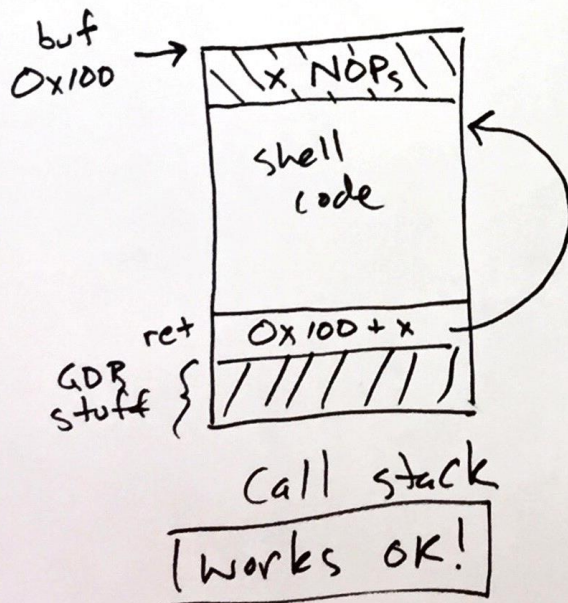 buf
0x100
x NOPs
shell
code
ret
0x100 + x
GDB
stuff
Call stack
works OK!